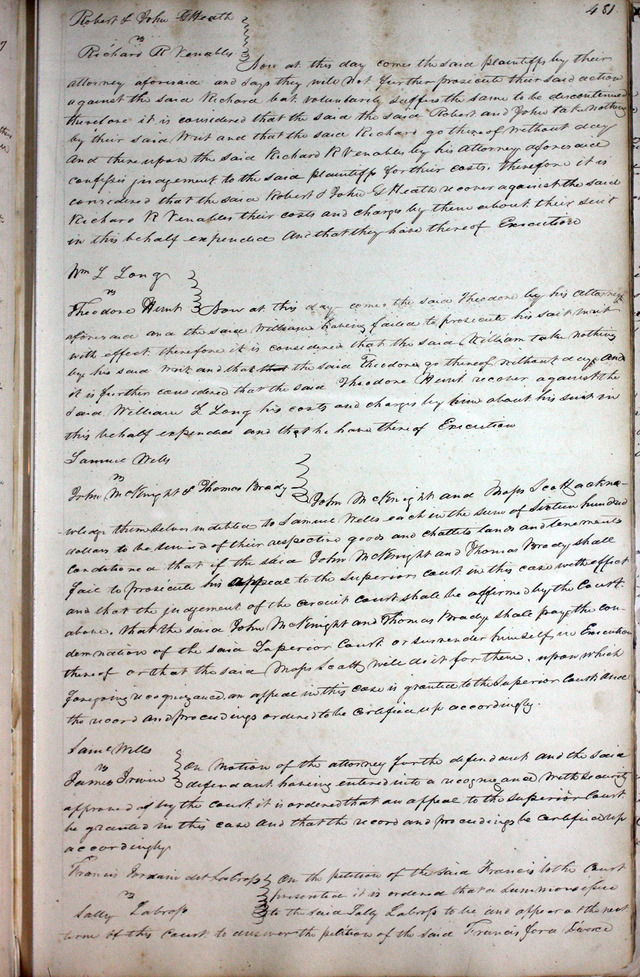 481
Robert & John G Heath
vs
Richard R Venables
Now at this day comes the said plaintiffs by their
attorney aforesaid and says they will not further prosecute their said action
against the said Richard but voluntarily suffers the same to be discontinued
therefore it is considered that the said the said Robert and John take nothing
by their said Writ and that the said Richard go thereof without day
And thereupon the said Richard R Venables by his Attorney aforesaid
confesses judgement to the said plaintiffs for their costs. Therefore it is
considered that the said Robert & John G Heath recover against the said
Richard R Venables their costs and charges by them about their suit
in this behalf expended And that they have thereof Execution
Wm L Long
vs
Theodore Hunt
Now at this day comes the said Theodore by his Attorney
aforesaid and the said William having failed to prosecute his said writ
with effect therefore it is considered that the said William take nothing
by his said writ and that the said Theodore go thereof without day And
it is further considered that the said Theodore Hunt recover against the
said William L Long his costs and charges by him about his suit in
this behalf expended and that he have thereof Execution
Samuel Wells
vs
John McKnight & Thomas Brady
John McKnight and Moses Scott ackno-
wledge themselves indebted to Samuel Wells each in the sum of sixteen hundred
dollars to be levied of their respective goods and chattels lands and tenements
Conditioned that if the said John McKnight and Thomas Brady shall
fail to prosecute his appeal to the Superior court in this case with effect
and that the judgement of the circuit court shall be affirmed by the Court
above, that the said John McKnight and Thomas Brady shall pay the con-
demnation of the said Superior Court or surrender himself in Execution
thereof or that the said Moses Scott will do it for them. upon which
foregoing recognizance an appeal in this case is granted to the Superior Court and
the record and proceedings ordered to be certified up accordingly.
Saml Wells
vs
James Irwin
On motion of the attorney for the defendant and the said
defendant having entered into a recognizance with security
approved of by the court it is ordered that an appeal to the Superior Court
be granted in this case and that the record and proceedings be certified up
accordingly
Francis Jordain dit Labross
vs
Sally Labross
On the petition of the said Francis to the Court
presented it is ordered that a summons issue
to the said Sally Labross to be and appear at the next
term of this court to answer the petition of the said Francis for a Divorce